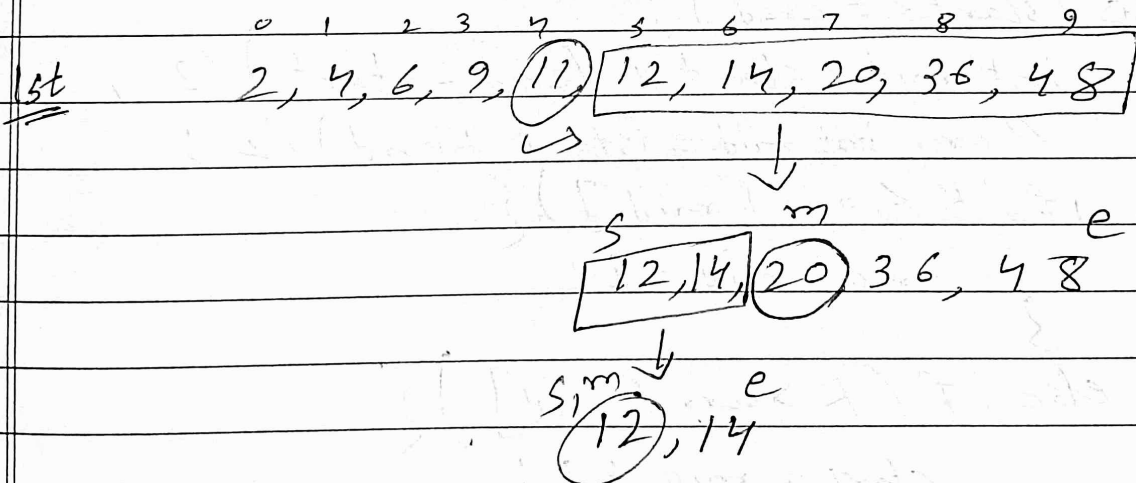 0 1 2 3 4 5 6 7 8 9
1st 2, 4, 6, 9, 11, 12, 14, 20, 36, 48
s m e
12, 14, 20, 36, 48
s, m e
12, 14